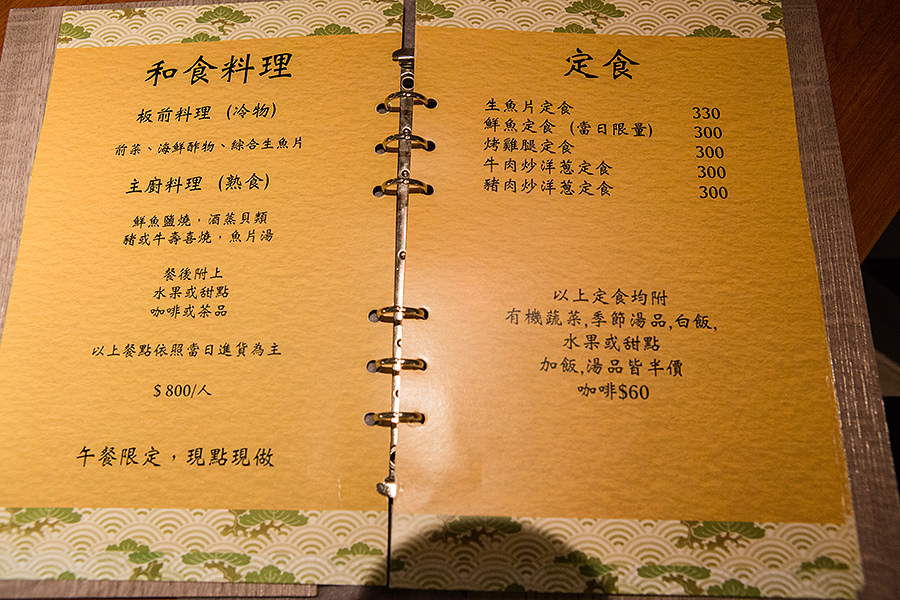 和食料理
板前料理 (冷物)
前菜、海鮮酢物、綜合生魚片
主廚料理 (熟食)
鮮魚鹽燒，酒蒸貝類
豬或牛壽喜燒，魚片湯
餐後附上
水果或甜點
咖啡或茶品
以上餐點依照當日進貨為主
$ 800/人
午餐限定，現點現做
定食
生魚片定食 330
鮮魚定食 (當日限量) 300
烤雞腿定食 300
牛肉炒洋蔥定食 300
豬肉炒洋蔥定食 300
以上定食均附
有機蔬菜,季節湯品,白飯,
水果或甜點
加飯,湯品皆半價
咖啡$60